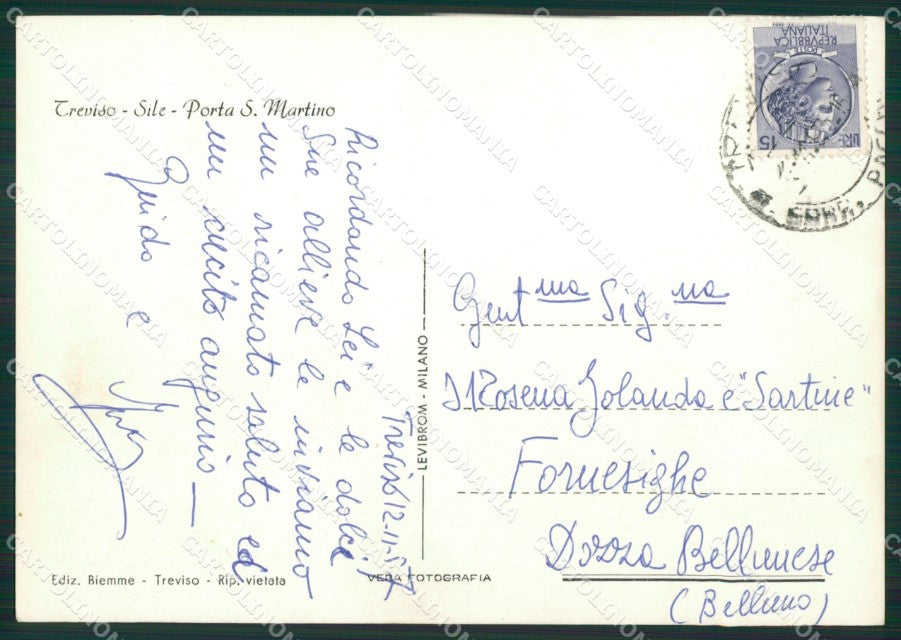 Treviso - Sile - Porta S. Martino
Treviso 12-11-57
Ricordando Lei e le dolci
Sue allieve le inviamo
un ricamato saluto ed
un cucito augurio —
Guido e
LEVIBROM - MILANO
REPVBBLICA
ITALIANA
POSTE
LIRE 15
Gent.ma Sig.na
Mosena Jolanda e "Sartine"
Fornesighe
Dozza Bellunese
(Belluno)
Ediz. Biemme - Treviso - Rip. vietata
VERA FOTOGRAFIA
CARTOLINOMANIA